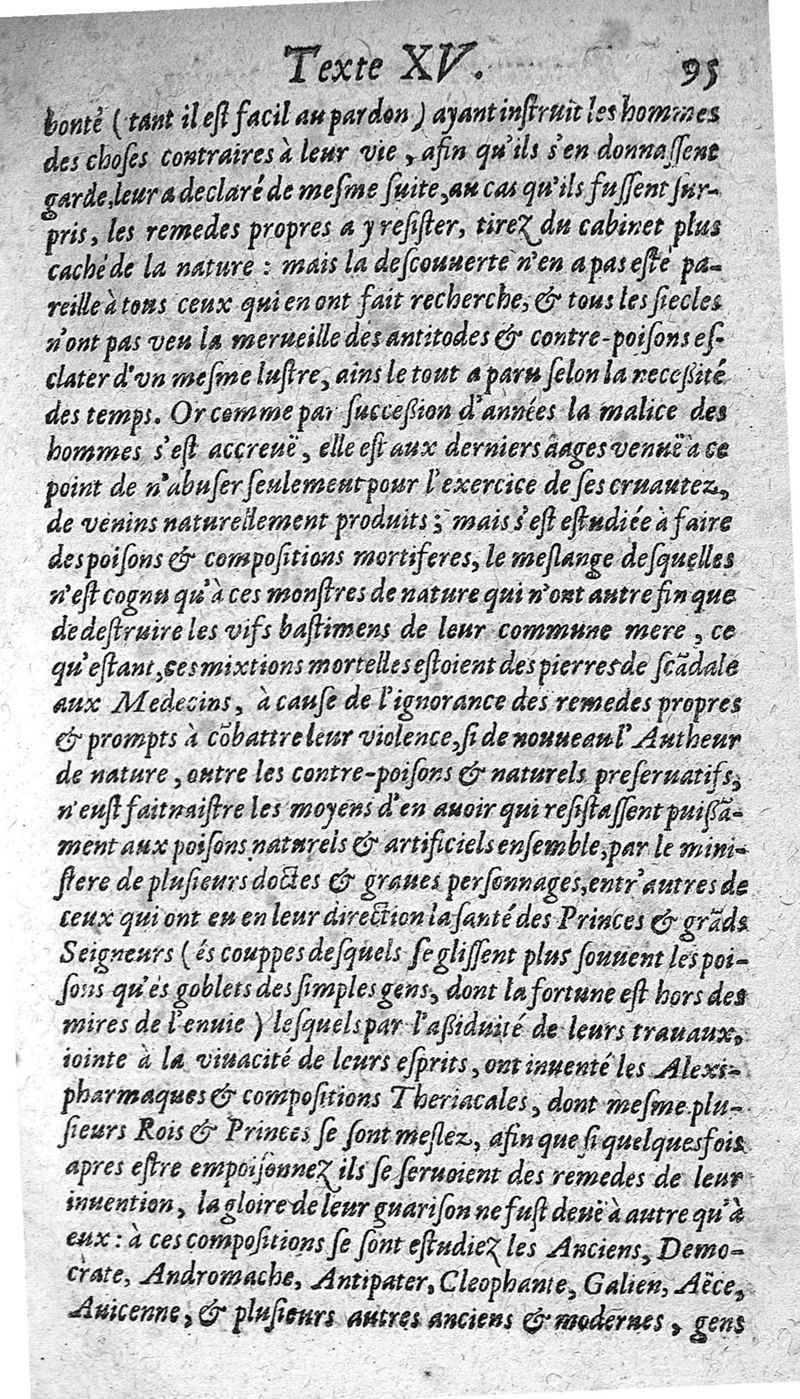 Texte XV. 95
bonté (tant il eſt facil au pardon) ayant inſtruit les hommes
des choſes contraires à leur vie, afin qu'ils s'en donnaſſent
garde, leur a declaré de meſme ſuite, au cas qu'ils fuſſent ſur-
pris, les remedes propres a y reſiſter, tirez du cabinet plus
caché de la nature : mais la deſcouuerte n'en a pas eſté pa-
reille à tous ceux qui en ont fait recherche, & tous les ſiecles
n'ont pas veu la merueille des antitodes & contre-poiſons eſ-
clater d'vn meſme luſtre, ains le tout a paru ſelon la neceßité
des temps. Or comme par ſucceßion d'années la malice des
hommes s'eſt accreuë, elle eſt aux derniers âages venuë à ce
point de n'abuſer ſeulement pour l'exercice de ſes cruautez,
de venins naturellement produits ; mais s'eſt eſtudiée à faire
des poiſons & compoſitions mortiferes, le meſlange deſquelles
n'eſt cognu qu'à ces monſtres de nature qui n'ont autre fin que
de deſtruire les vifs baſtimens de leur commune mere, ce
qu'eſtant, ces mixtions mortelles eſtoient des pierres de ſcãdale
aux Medecins, à cauſe de l'ignorance des remedes propres
& prompts à cõbattre leur violence, ſi de nouueau l'Autheur
de nature, outre les contre-poiſons & naturels preſeruatifs,
n'euſt fait naiſtre les moyens d'en auoir qui reſiſtaſſent puißã-
ment aux poiſons naturels & artificiels enſemble, par le mini-
ſtere de pluſieurs doctes & graues perſonnages, entr'autres de
ceux qui ont eu en leur direction la ſanté des Princes & grãds
Seigneurs (és couppes deſquels ſe gliſſent plus ſouuent les poi-
ſons qu'és goblets des ſimples gens, dont la fortune eſt hors des
mires de l'enuie) leſquels par l'aßiduité de leurs trauaux,
iointe à la viuacité de leurs eſprits, ont inuenté les Alexi-
pharmaques & compoſitions Theriacales, dont meſme plu-
ſieurs Rois & Princes ſe ſont meſlez, afin que ſi quelquesfois
apres eſtre empoiſonnez ils ſe ſeruoient des remedes de leur
inuention, la gloire de leur guariſon ne fuſt deuë à autre qu'à
eux : à ces compoſitions ſe ſont eſtudiez les Anciens, Demo-
crate, Andromache, Antipater, Cleophante, Galien, Aëce,
Auicenne, & pluſieurs autres anciens & modernes, gens